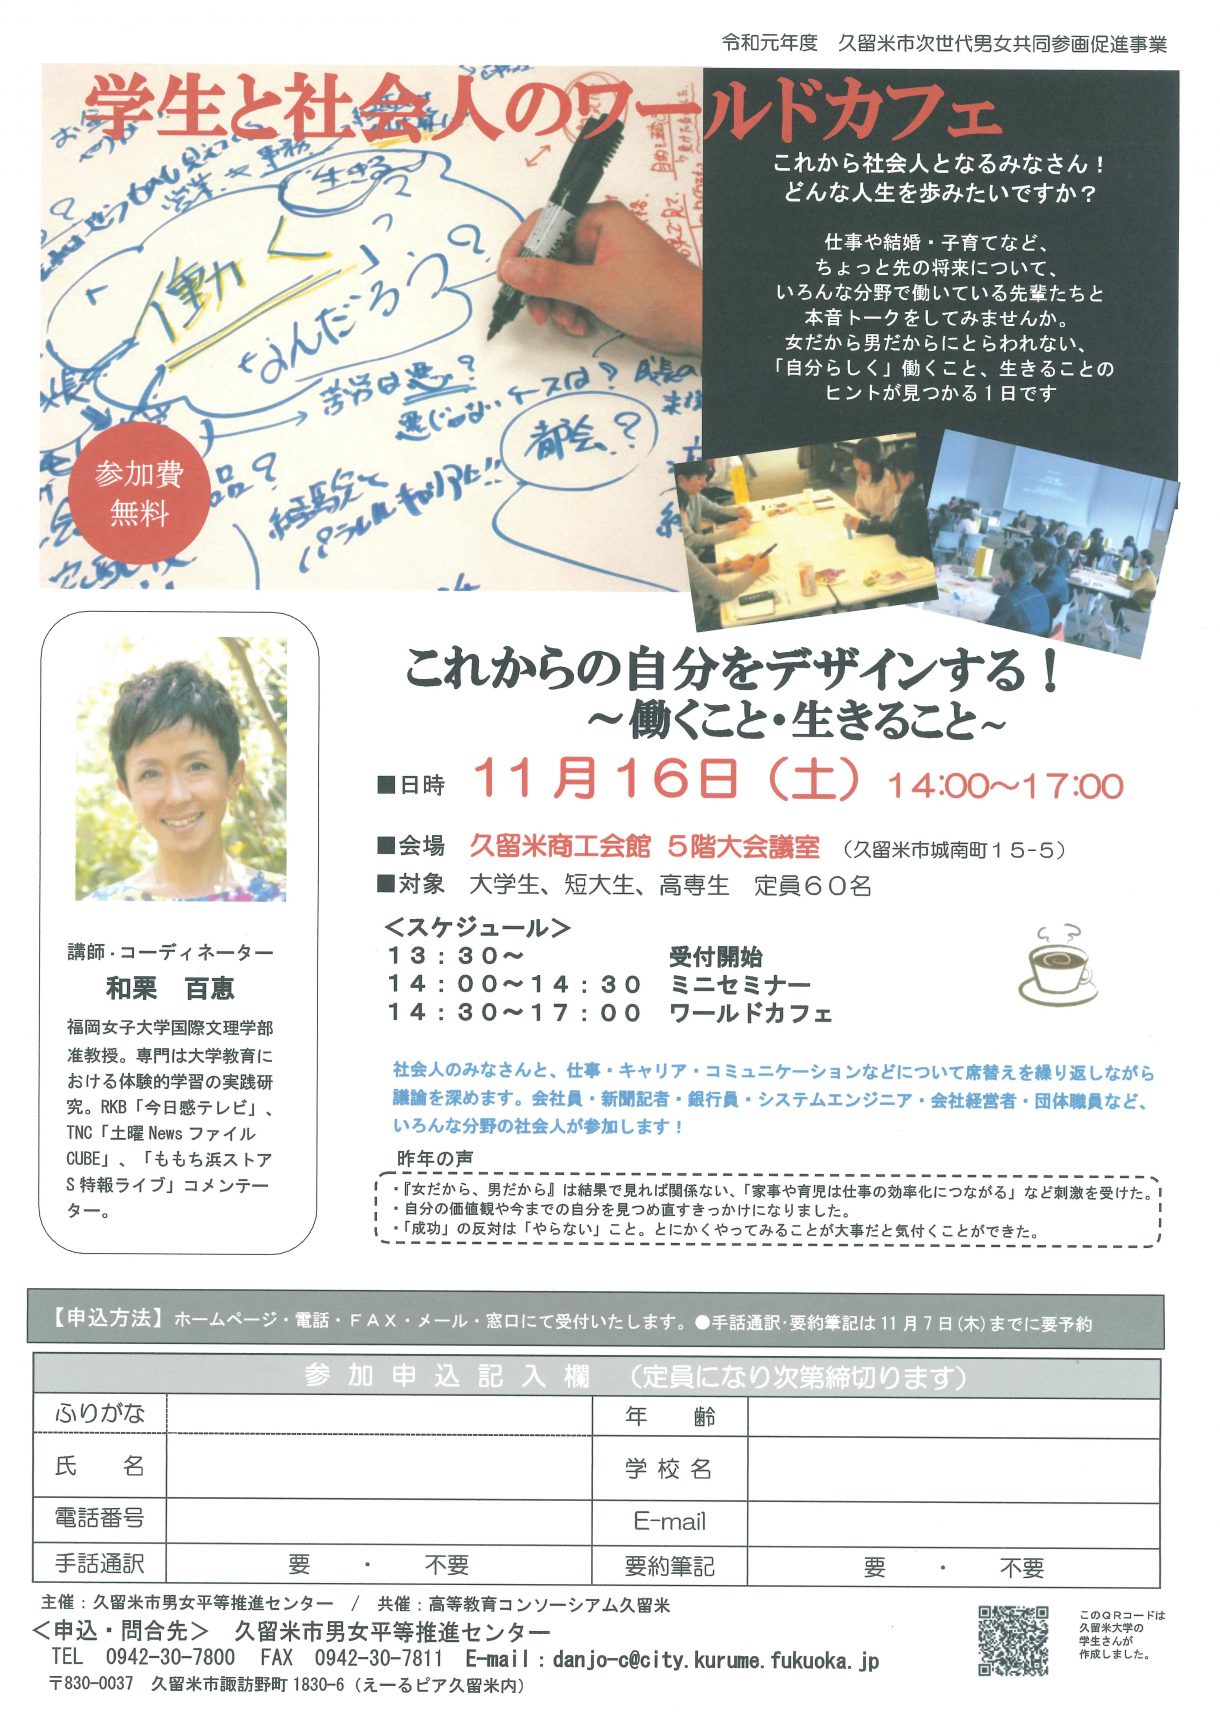 令和元年度　久留米市次世代男女共同参画促進事業
学生と社会人のワールドカフェ
これから社会人となるみなさん！
どんな人生を歩みたいですか？
仕事や結婚・子育てなど、
ちょっと先の将来について、
いろんな分野で働いている先輩たちと
本音トークをしてみませんか。
女だから男だからにとらわれない、
「自分らしく」働くこと、生きることの
ヒントが見つかる１日です
生きる
働く
なんだろう？
苦労は悪？
悪じゃない
ケースは？
都会？
経験で
パラレルキャリア!!
参加費
無料
これからの自分をデザインする！
～働くこと・生きること～
■日時　11月16日（土）14:00～17:00
■会場　久留米商工会館 ５階大会議室 （久留米市城南町１５-５）
■対象　大学生、短大生、高専生　定員６０名
＜スケジュール＞
１３：３０～　受付開始
１４：００～１４：３０　ミニセミナー
１４：３０～１７：００　ワールドカフェ
社会人のみなさんと、仕事・キャリア・コミュニケーションなどについて席替えを繰り返しながら
議論を深めます。会社員・新聞記者・銀行員・システムエンジニア・会社経営者・団体職員など、
いろんな分野の社会人が参加します！
昨年の声
・『女だから、男だから』は結果で見れば関係ない、「家事や育児は仕事の効率化につながる」など刺激を受けた。
・自分の価値観や今までの自分を見つめ直すきっかけになりました。
・「成功」の反対は「やらない」こと。とにかくやってみることが大事だと気付くことができた。
講師・コーディネーター
和栗　百恵
福岡女子大学国際文理学部
准教授。専門は大学教育に
おける体験的学習の実践研
究。RKB「今日感テレビ」、
TNC「土曜 News ファイル
CUBE」、「ももち浜ストア
S特報ライブ」コメンテー
ター。
【申込方法】ホームページ・電話・ＦＡＸ・メール・窓口にて受付いたします。●手話通訳・要約筆記は11月7日(木)までに要予約
参加申込記入欄　（定員になり次第締切ります）
ふりがな　年　齢
氏　名　学校名
電話番号　E-mail
手話通訳　要　・　不要　要約筆記　要　・　不要
主催：久留米市男女平等推進センター　/　共催：高等教育コンソーシアム久留米
＜申込・問合先＞　久留米市男女平等推進センター
TEL　0942-30-7800　FAX　0942-30-7811　E-mail：danjo-c@city.kurume.fukuoka.jp
〒830-0037　久留米市諏訪野町1830-6（えーるピア久留米内）
このＱＲコードは
久留米大学の
学生さんが
作成しました。